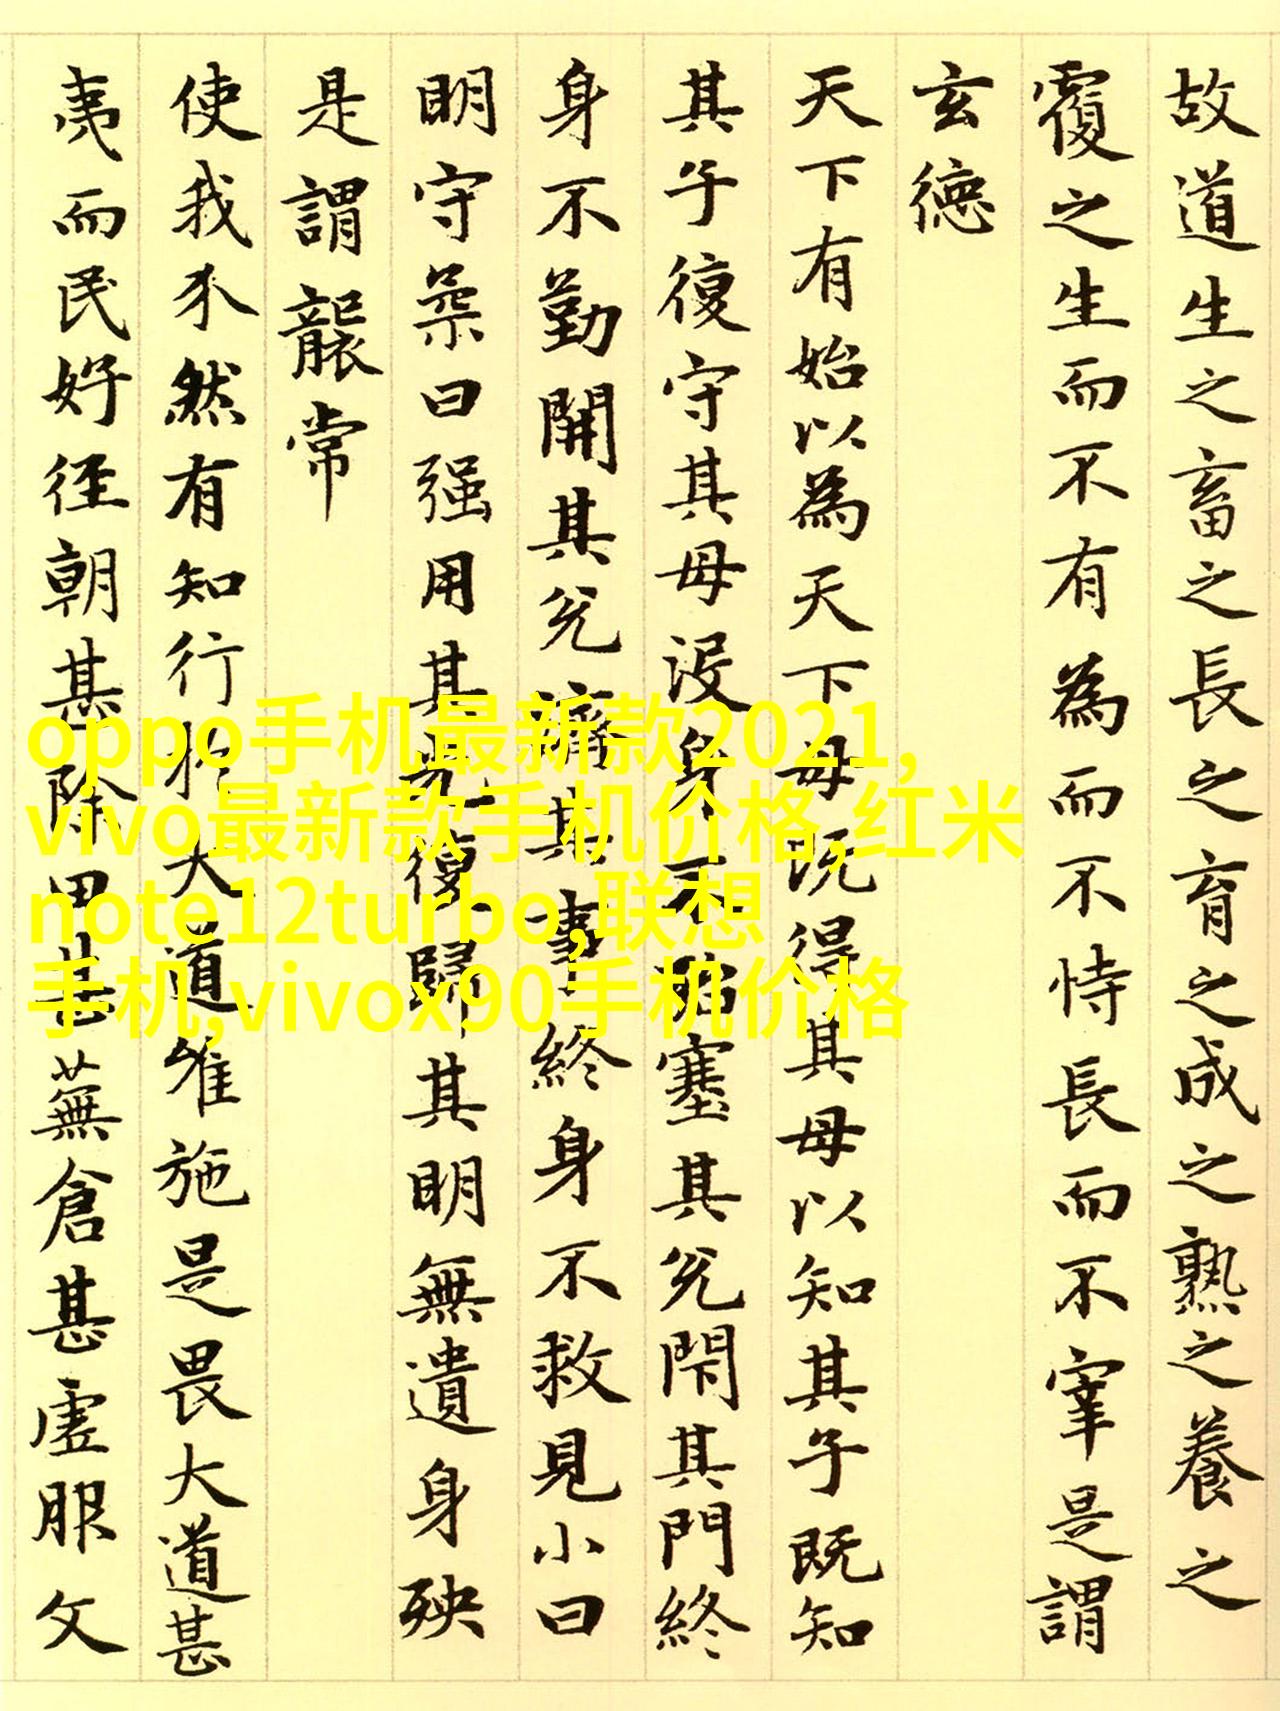 故道生之畜之長之育之成之熟之養之
覆之生而不有為而不恃長而不宰是謂
玄德
天下有始以為天下母既得其母以知其子既知
其子復守其母没身不殆塞其兊閇其門終
身不勤開其兊濟其事終身不救見小曰
明守柔曰强用其光復歸其明無遺身殃
是謂襲常
使我介然有知行於大道唯施是畏大道甚
夷而民好徑朝甚除田甚蕪倉甚虛服文
oppo手机最新款2021,
vivo最新款手机价格,红米
note12turbo,联想
手机,vivox90手机价格